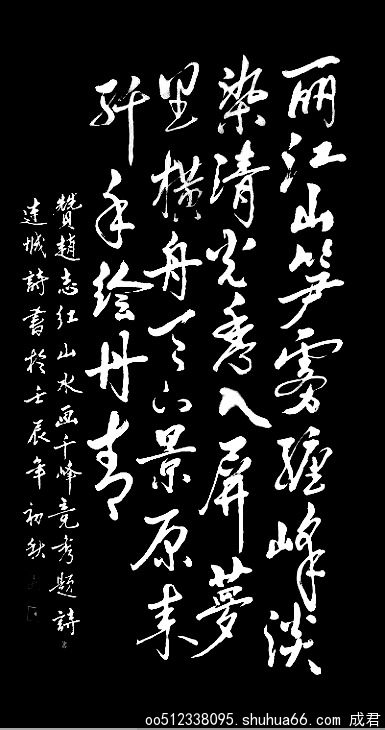 丽江山笋雾缠峰淡
染清光秀入屏梦
里横舟天下景原来
纤手绘丹青
贊趙志红山水画千峰竞秀題詩
達城詩書於壬辰年初秋
oo512338095.shuhua66.com 成君